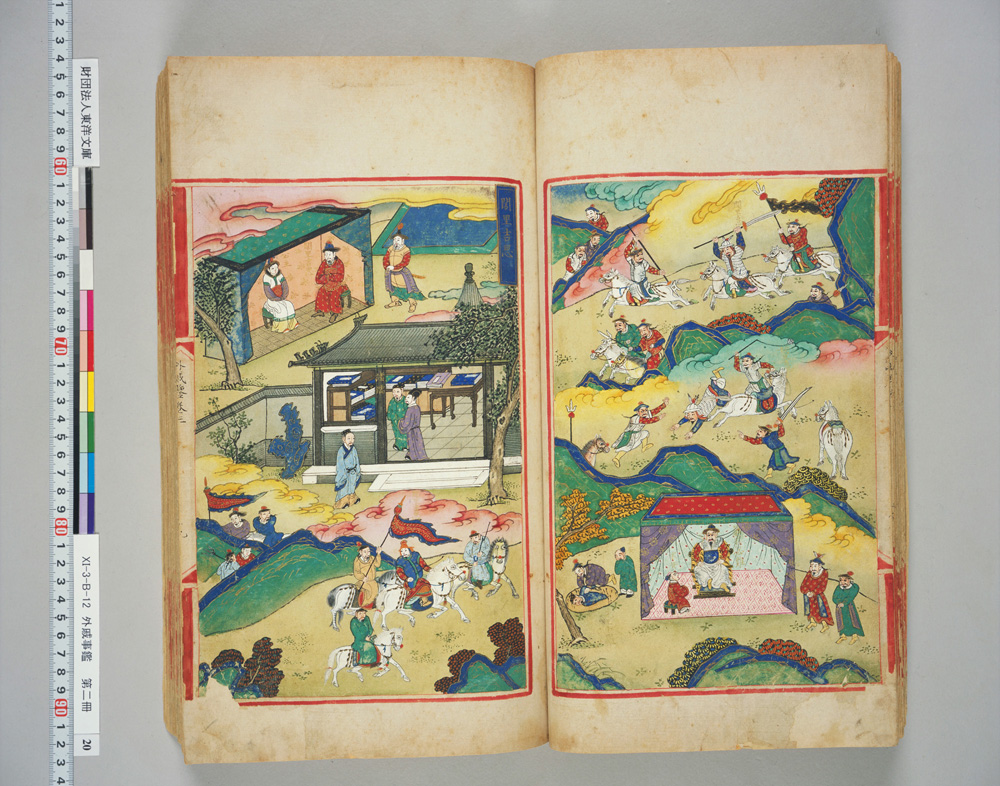 財団法人東洋文庫
XI-3-B-12 外戚事鑑 第二冊 20
闊里吉思
1 2 3 4 5 6 7 8 9 60 1 2 3 4 5 6 7 8 9 70 1 2 3 4 5 6 7 8 9 80 1 2 3 4 5 6 7 8 9 90 1 2 3 4